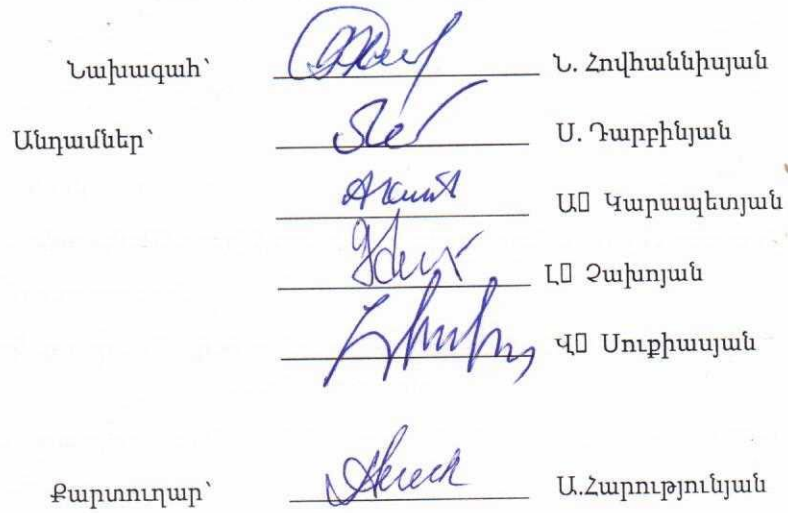 Նախագահ՝ Ն. Հովհաննիսյան
Անդամներ՝ Ս. Դարբինյան
Ա Կարապետյան
Լ Չախոյան
Վ Սուքիասյան
Քարտուղար՝ Ա.Հարությունյան